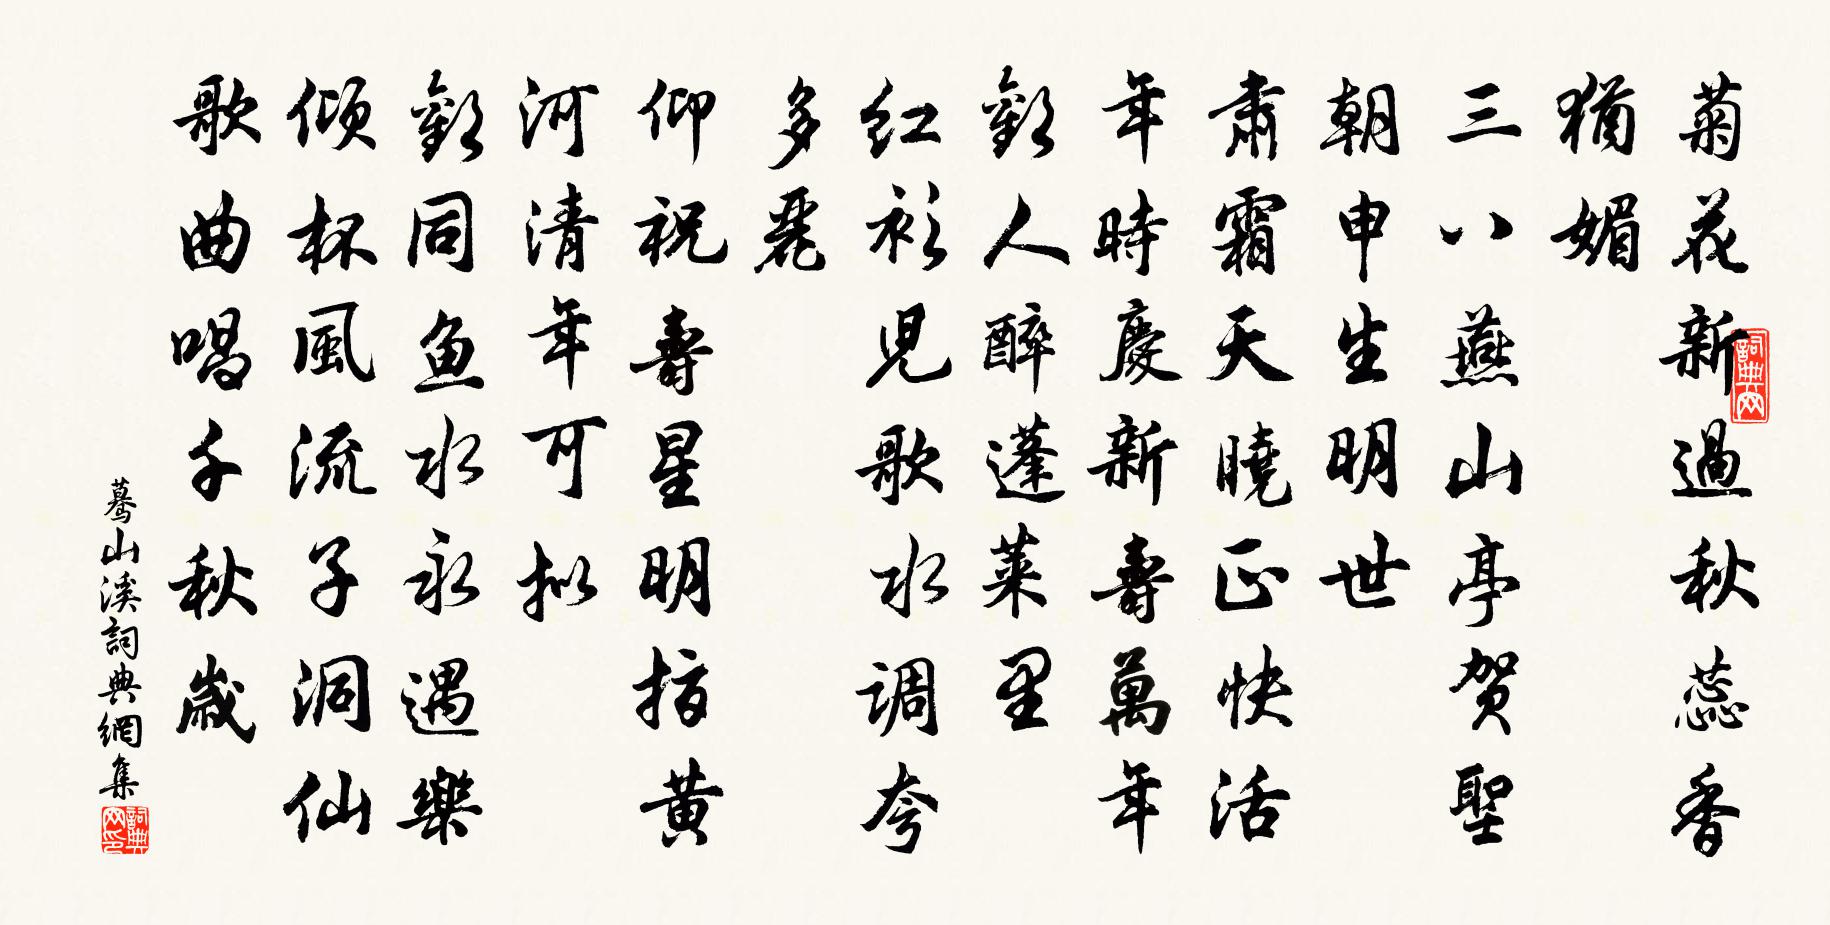 菊花新過秋蕊香
猶媚
三八燕山亭贺聖
朝申生明世
肅霜天曉正快活
年時慶新壽萬年
歡人醉蓬莱里
红衫児歌水调夸
多麗
仰祝壽星明指黄
河清年可拟
歡同鱼水永遇樂
倾杯風流子洞仙
歌曲唱千秋歲
驀山溪詞典網集
詞典网
詞典网印